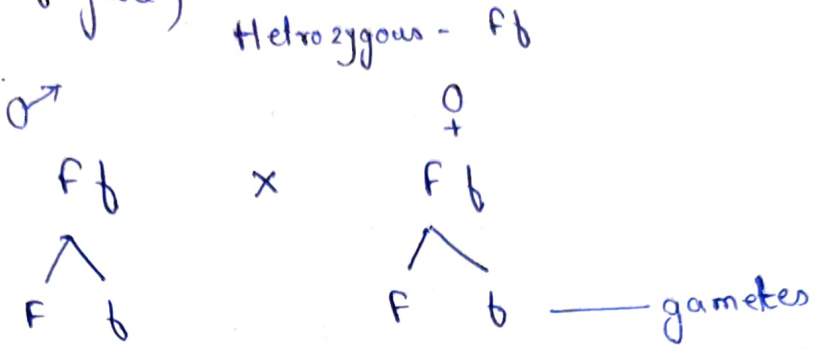 Hetrozygous - Ff
♂ ♀
Ff × Ff
F f F f — gametes